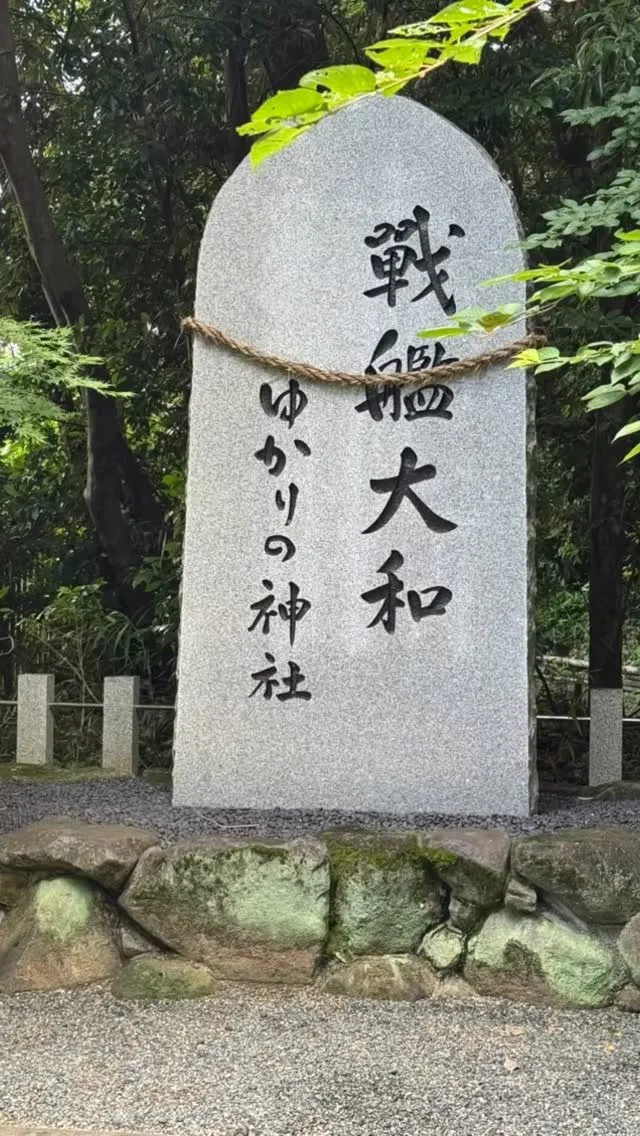 戰艦大和
ゆかりの神社